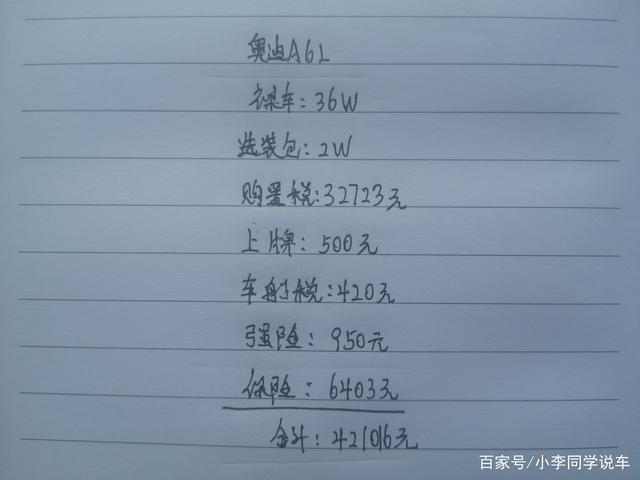 奥迪A6L
裸车：36W
选装包：2W
购置税：32723元
上牌：500元
车船税：420元
强险：950元
保险：6403元
合计：421016元
百家号/小李同学说车